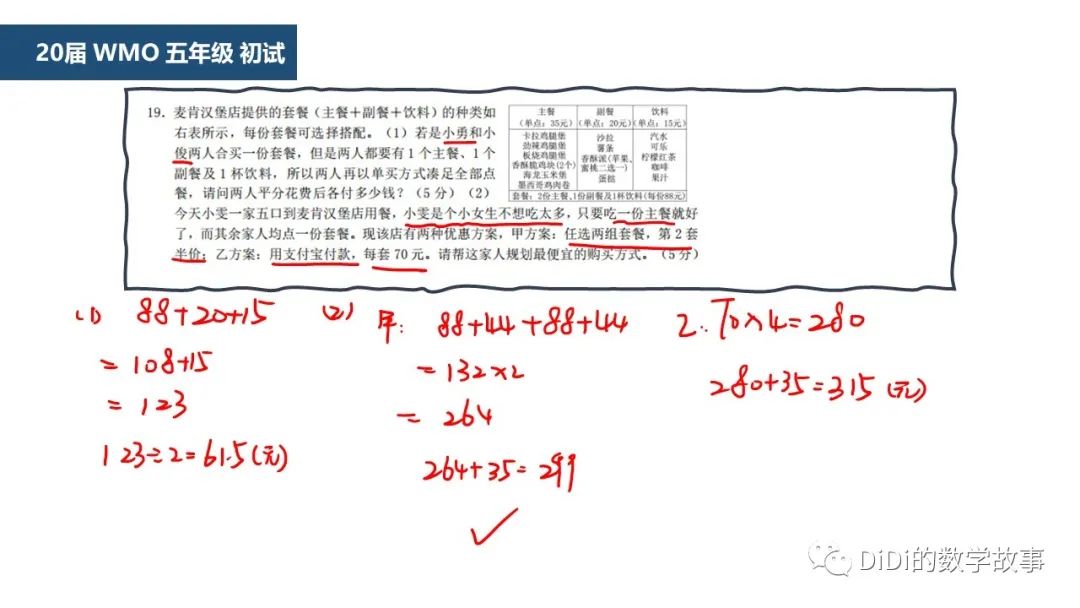 20届 WMO 五年级 初试
19. 麦肯汉堡店提供的套餐（主餐＋副餐＋饮料）的种类如
右表所示，每份套餐可选择搭配。（1）若是小勇和小
俊两人合买一份套餐，但是两人都要有1个主餐、1个
副餐及1杯饮料，所以两人再以单买方式凑足全部点
餐，请问两人平分花费后各付多少钱？（5分）（2）
今天小雯一家五口到麦肯汉堡店用餐，小雯是个小女生不想吃太多，只要吃一份主餐就好
了，而其余家人均点一份套餐。现该店有两种优惠方案，甲方案：任选两组套餐，第2套
半价；乙方案：用支付宝付款，每套70元。请帮这家人规划最便宜的购买方式。（5分）
主餐 副餐 饮料
（单点：35元） （单点：20元） （单点：15元）
卡拉鸡腿堡
劲辣鸡腿堡
板烧鸡腿堡
香酥脆鸡块(2个)
海龙玉米堡
墨西哥鸡肉卷
沙拉
薯条
香酥派（苹果、
蜜桃二选一）
蛋挞
汽水
可乐
柠檬红茶
咖啡
果汁
套餐：2份主餐、1份副餐及1杯饮料（每份88元）
(1) 88+20+15
=108+15
=123
123÷2=61.5(元)
(2) 甲: 88+44+88+44
=132×2
=264
264+35=299
乙: 70×4=280
280+35=315(元)
DiDi的数学故事